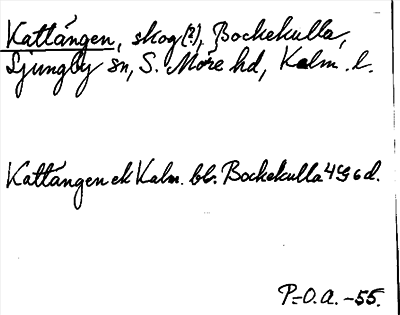 Kattängen, skog(?), Bockekulla,
Ljungby sn, S. Möre hd, Kalm. l.
Kattängen ek Kalm. bl. Bockekulla 4G6d.
P-O.A. -55.